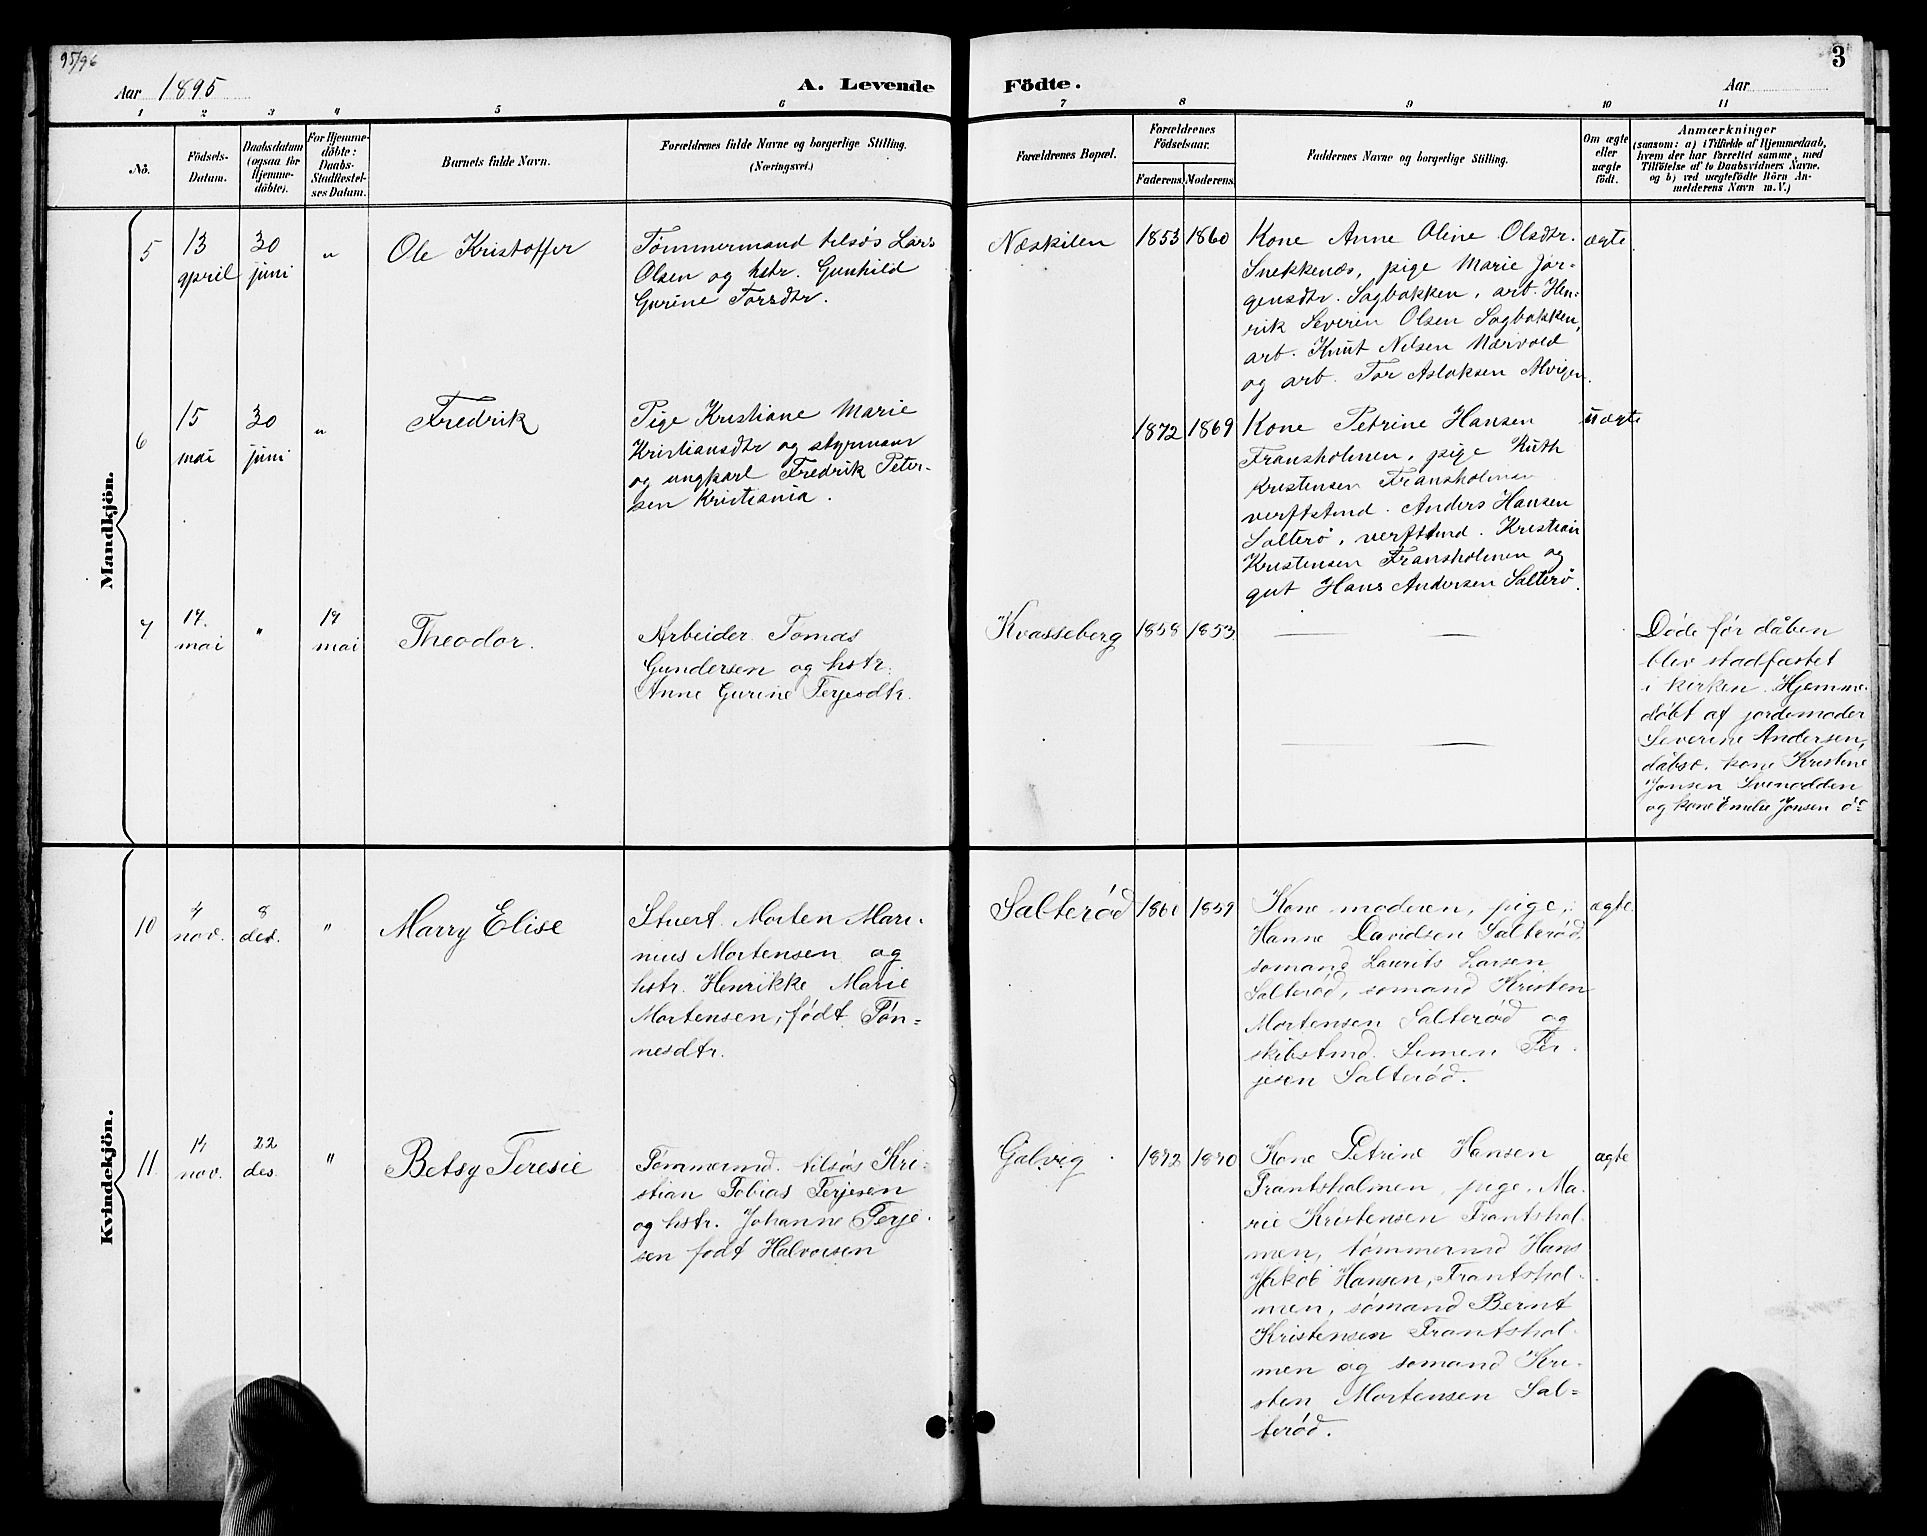 95/96
3
Aar 1895
A. Levende
Födte.
Aar
1 2 3 4 5 6 7 8 9 10 11
No.
Födsels-
Datum.
Daabsdatum
(ogsaa for
Hjemme-
döbte).
For Hjemme-
döbte:
Daabs-
Stadfæstel-
ses Datum.
Barnets fulde Navn.
Forældrenes fulde Navne og borgerlige Stilling.
(Næringsvei.)
Forældrenes Bopæl.
Forældrenes
Födselsaar.
Faderens. Moderens.
Faddernes Navne og borgerlige Stilling.
Om ægte
eller
uægte
födt.
Anmærkninger
(saasom: a) i Tilfælde af Hjemmedaab,
hvem der har forrettet samme, med
Tilföielse af to Daabsvidners Navne.
og b) ved uægtefödte Börn An-
melderens Navn m. V.)
Mandkjön.
5
13
april
30
juni
"
Ole Kristoffer
Tømmermand tilsøs Lars
Olsen og hstr. Gunhild
Gurine Torsdtr.
Næskilen
1853 1860
Kone Anne Oline Olsdtr.
Snekkenæs, pige Marie Jør-
gensdtr. Sagbakken, arb. Hen-
rik Severin Olsen Sagbakken,
arb. Knut Nilsen Narvold
og arb. Tor Aslaksen Alvigen.
ægte
6
15
mai
30
juni
"
Fredrik
Pige Kristiane Marie
Kristiansdtr og styrmann
og ungkarl Fredrik Peter-
sen Kristiania.
1872 1869
Kone Petrine Hansen
Fransholmen, pige Ruth
Kristensen Fransholmen
verftstmd. Anders Hansen
Salterø, verftstmd. Kristian
Kristensen Fransholmen og
gut Hans Andersen Salterø.
uægte
7
mai
"
mai
Theodor.
Arbeider Tomas
Gundersen og hstr.
Anne Gurine Terjesdtr.
Kvasseberg
1858 1853
Døde før dåben
blev stadfæstet
i kirken. Hjemme-
døbt af jordemoder
Severine Andersen,
dåbsv. kone Kristine
Jonsen Svenodden
og kone Emelie Jonsen
Kvindekjön.
10
4
nov.
8
des.
"
Marry Elise
Stuert. Morten Mari-
nius Mortensen og
hstr. Henrikke Marie
Mortensen, født Tøn-
nesdtr.
Salterød
1860 1859
Kone moderen, pige,
Hanne Davidsen Salterød,
sømand Laurits Larsen
Salterød, sømand Kristen
Mortensen Salterød og
skibstmd. Simen Ter-
jesen Salterød.
ægte
11
14
nov.
22
des.
"
Betsy Teresie
Tømmermd. tilsøs Kri-
stian Tobias Terjesen
og hstr. Johanne Terje-
sen født Halvorsen
Galvig
1872 1870
Kone Petrine Hansen
Frantsholmen, pige, Ma-
rie Kristensen Frantshol-
men, tømmermd Hans
Jakob Hansen, Frantshol-
men, sømand Bernt
Kristensen Frantshol-
men og sømand Kri-
sten Mortensen Sal-
terød.
ægte